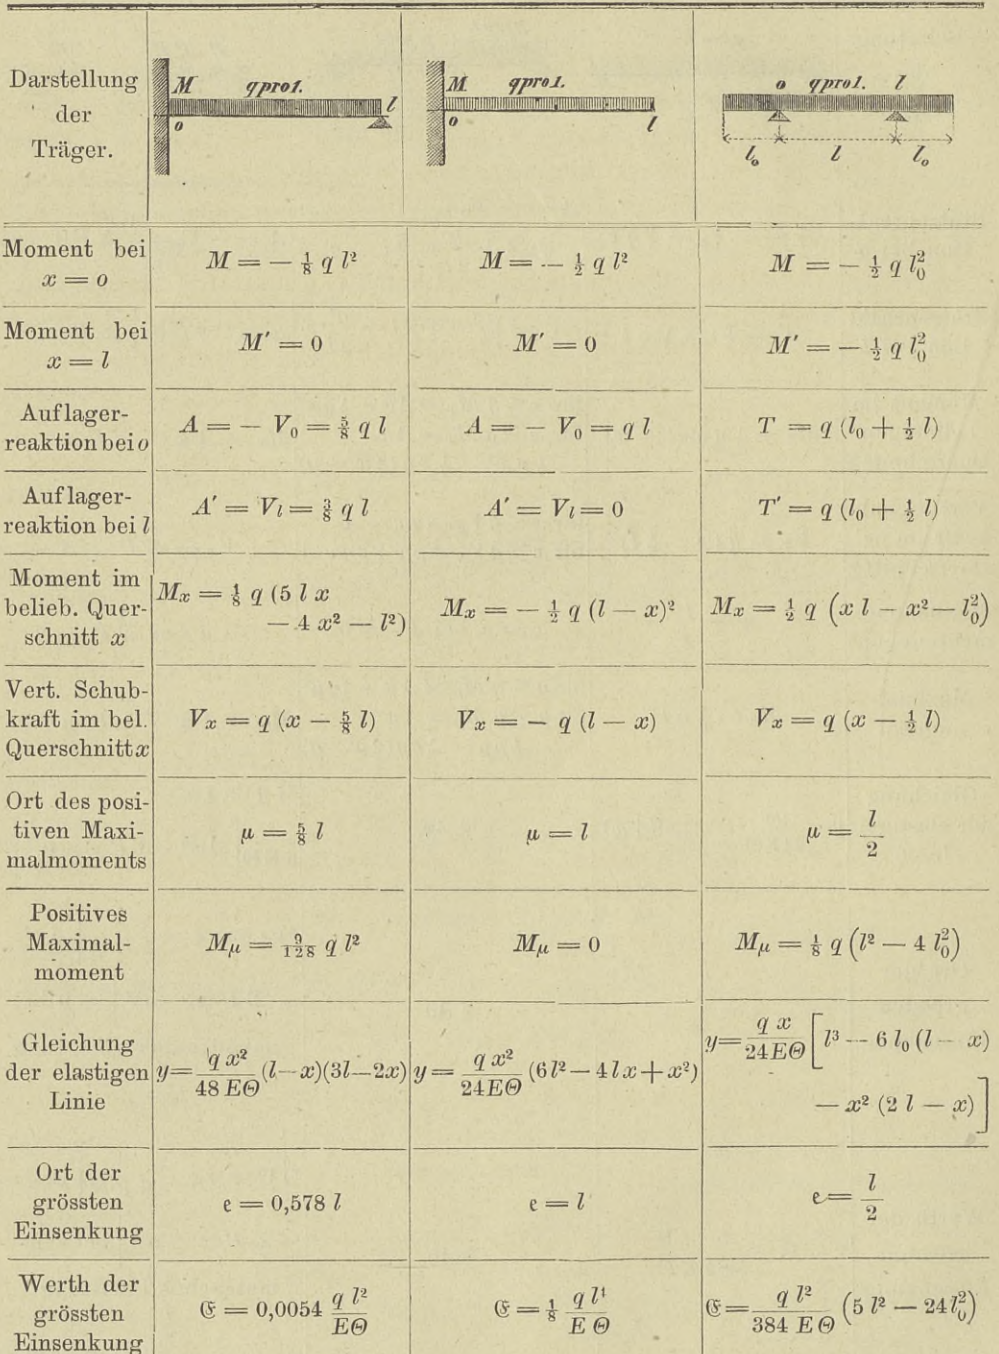 Darstellung der Träger.
M qpro1. o l
M qpro1. o l
o qpro1. l l₀ l l₀
Moment bei x = o
M = — ⅛ q l²
M = — ½ q l²
M = — ½ q l₀²
Moment bei x = l
M′ = 0
M′ = 0
M′ = — ½ q l₀²
Auflager-
reaktion bei o
A = — V₀ = ⅝ q l
A = — V₀ = q l
T = q (l₀ + ½ l)
Auflager-
reaktion bei l
A′ = Vₗ = ⅜ q l
A′ = Vₗ = 0
T′ = q (l₀ + ½ l)
Moment im
belieb. Quer-
schnitt x
Mₓ = ⅛ q (5 l x
— 4 x² — l²)
Mₓ = — ½ q (l — x)²
Mₓ = ½ q (x l — x² — l₀²)
Vert. Schub-
kraft im bel.
Querschnitt x
Vₓ = q (x — ⅝ l)
Vₓ = — q (l — x)
Vₓ = q (x — ½ l)
Ort des posi-
tiven Maxi-
malmoments
μ = ⅝ l
μ = l
μ = l/2
Positives
Maximal-
moment
M_μ = 9/128 q l²
M_μ = 0
M_μ = ⅛ q (l² — 4 l₀²)
Gleichung
der elastigen
Linie
y = q x²/48 EΘ (l — x)(3l — 2x)
y = q x²/24EΘ (6 l² — 4 l x + x²)
y = q x/24EΘ [l³ — 6 l₀ (l — x)
— x² (2 l — x)]
Ort der
grössten
Einsenkung
e = 0,578 l
e = l
e = l/2
Werth der
grössten
Einsenkung
𝔈 = 0,0054 q l²/EΘ
𝔈 = ⅛ q l⁴/E Θ
𝔈 = q l²/384 E Θ (5 l² — 24 l₀²)